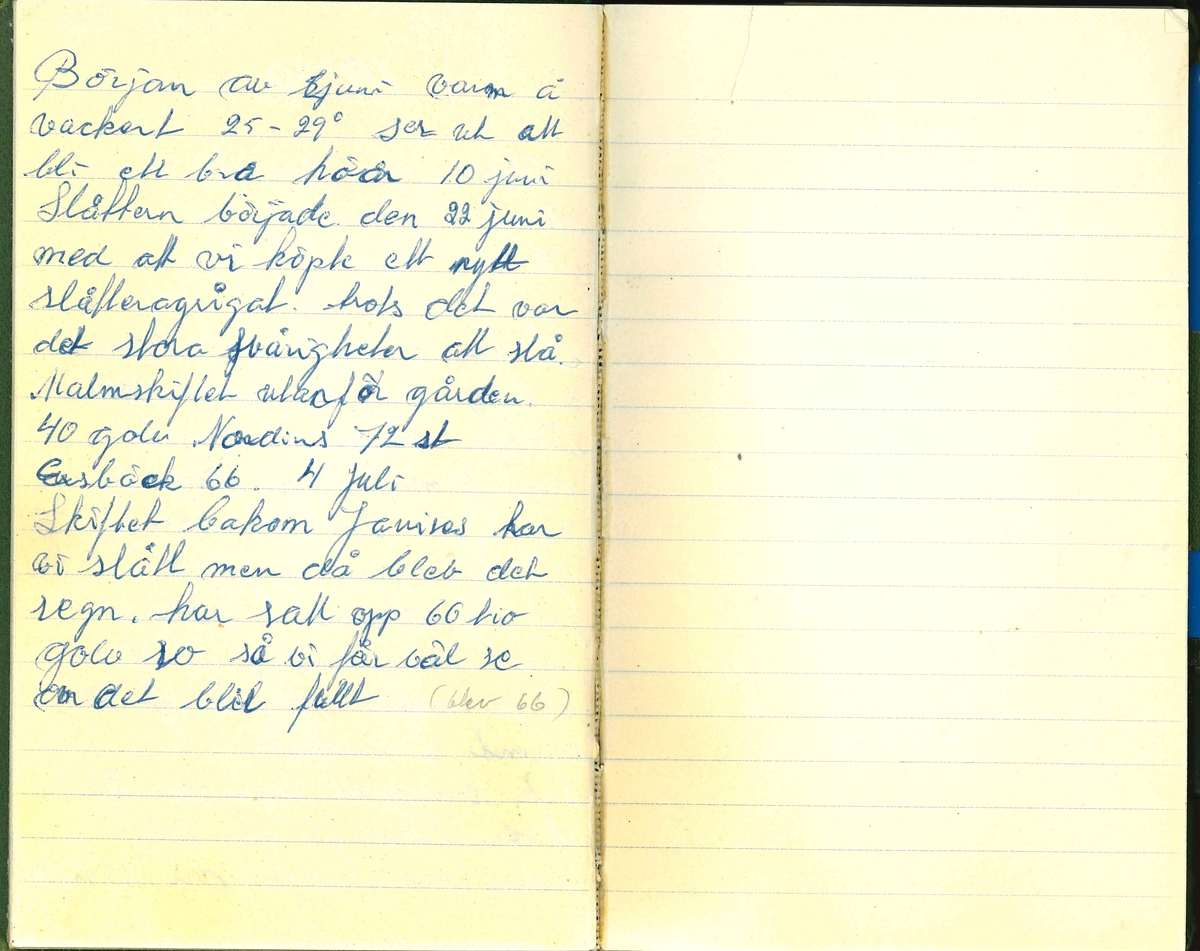 Början av juni varm å
vackert 25-29° ser ut att
bli ett bra höår 10 juni
Slåttern började den 22 juni
med att vi köpte ett nytt
slåtteragrigat. trots det var
det stora svårigheter att slå.
Malmskiftet utanför gården.
40 golv Nordins 72 st
66. 4 Juli
Skiftet bakom har
vi slått men då blev det
regn. har satt opp 60 tio
golv så vi får väl se
om det blil fullt (blev 66)